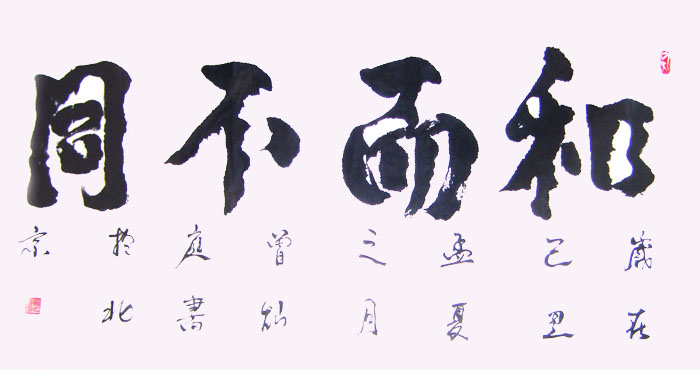 和而不同
歲在
己丑
孟夏
之月
曾灿
庭書
於北
京